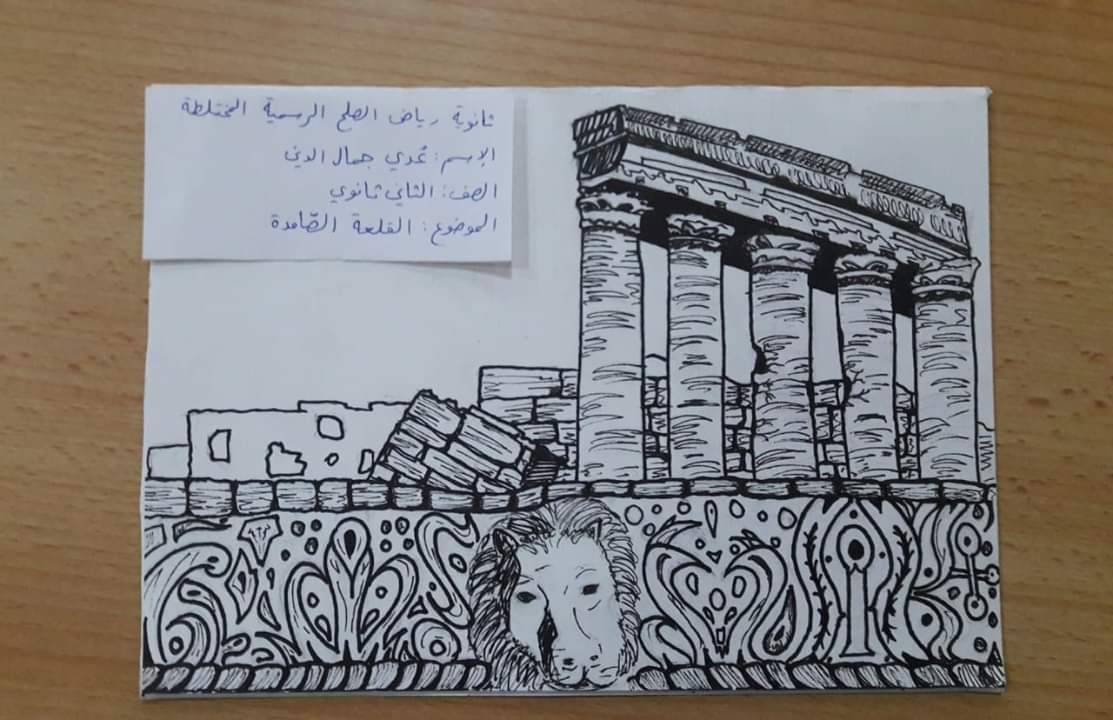 ثانوية رياض الصلح الرسمية المختلطة
الإسم: عُدي جمال الدين
الصف: الثاني ثانوي
الموضوع: القلعة الصّامدة